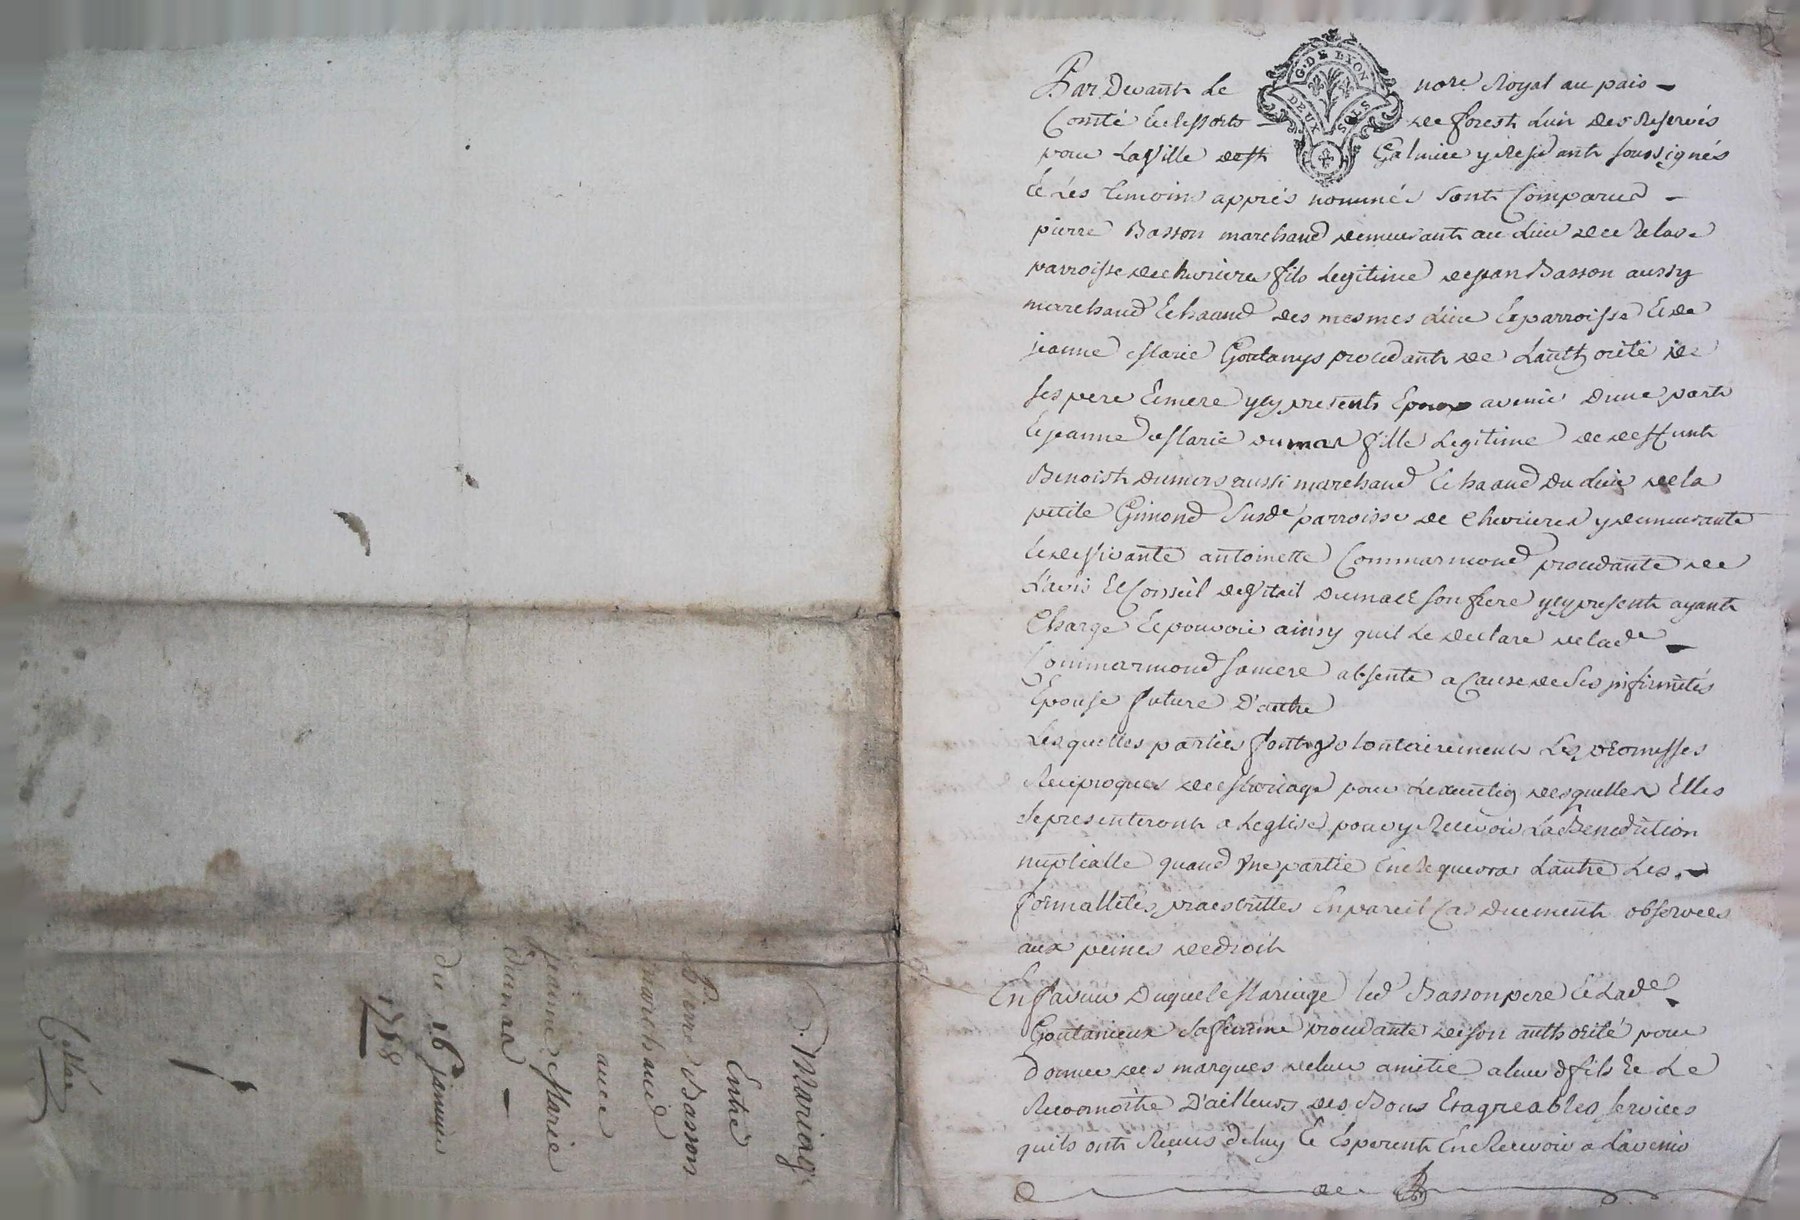 Mariage
Entre
Pierre Basson
marchand
avec
jeanne Marie
dumas
du 16 janvier
1758
G. DE LYON
DEUX SOLS
Par Devant Le nore Royal au pais
Comté et ressorts de forest Lun des Reservés
pour La Ville de St Galmier y Residant soussignés
et Les temoins apprés nommés sont Comparus
pierre Basson marchand demeurant au Lieu de
parroisse de chevrieres fils Legitime de jean Basson aussy
marchand des mesmes Lieu et parroisse et de
jeanne Marie procedant de Lauthorité de
ses pere et mere ycy presents Epoux avenir dune part
et jeanne Marie dumas fille Legitime de deffunt
Benoist dumas aussi marchand du Lieu de la
petite Gimond susde parroisse de chevrieres y demeurante
et de vivante antoinette Commarmond procedante de
L'avis et Conseil de Vital dumas son frere ycy present ayant
Charge et pouvoir ainsy quil Le declare de lade
Commarmond sa mere absente a Cause de ses infirmités
Epouse future D'autre
Lesquelles parties font volontairement Les promesses
Reciproques de Mariage pour Lexecution desquelles Elles
se presenteront a Leglise pour y Recevoir La Benediction
nuptialle quand Vne partie En Requerra Lautre Les
formallités praescrittes En pareil Cas duement observées
aux peines de droit
En faveur Duquel Mariage led Basson pere et Lade
sa femme procedante de son authorité pour
donner des marques de leur amitié a leurd fils et Le
Reconnoitre D'ailleurs des Bons Et agreables services
quils ont Reçus de luy et Esperent En Recevoir a L'avenir
de